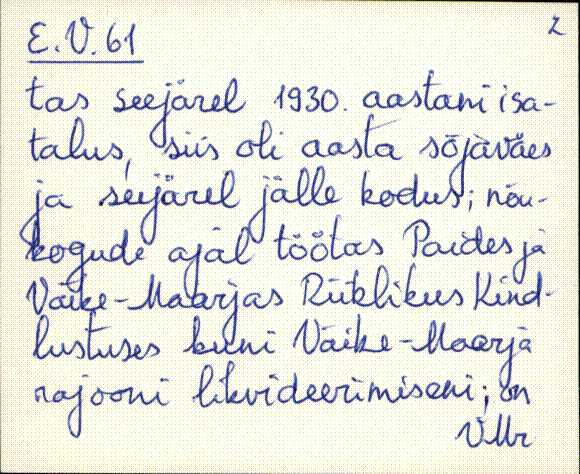 2
E.V. 61
tas seejärel 1930. aastani isa-
talus, siis oli aasta sõjaväes
ja seejärel jälle kodus; nõu-
kogude ajal töötas Paides ja
Väike-Maarjas Riiklikus Kind-
lustuses kuni Väike-Maarja
rajooni likvideerimiseni; on
VMr